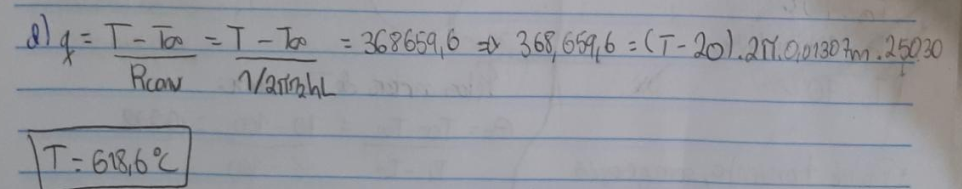 d) q = T - T∞ / Rconv = T - T∞ / 1/2πr2hL = 368659,6 ⇒ 368,659,6 = (T - 20) . 2π . 0,01307m . 250.30
T = 618,6°C